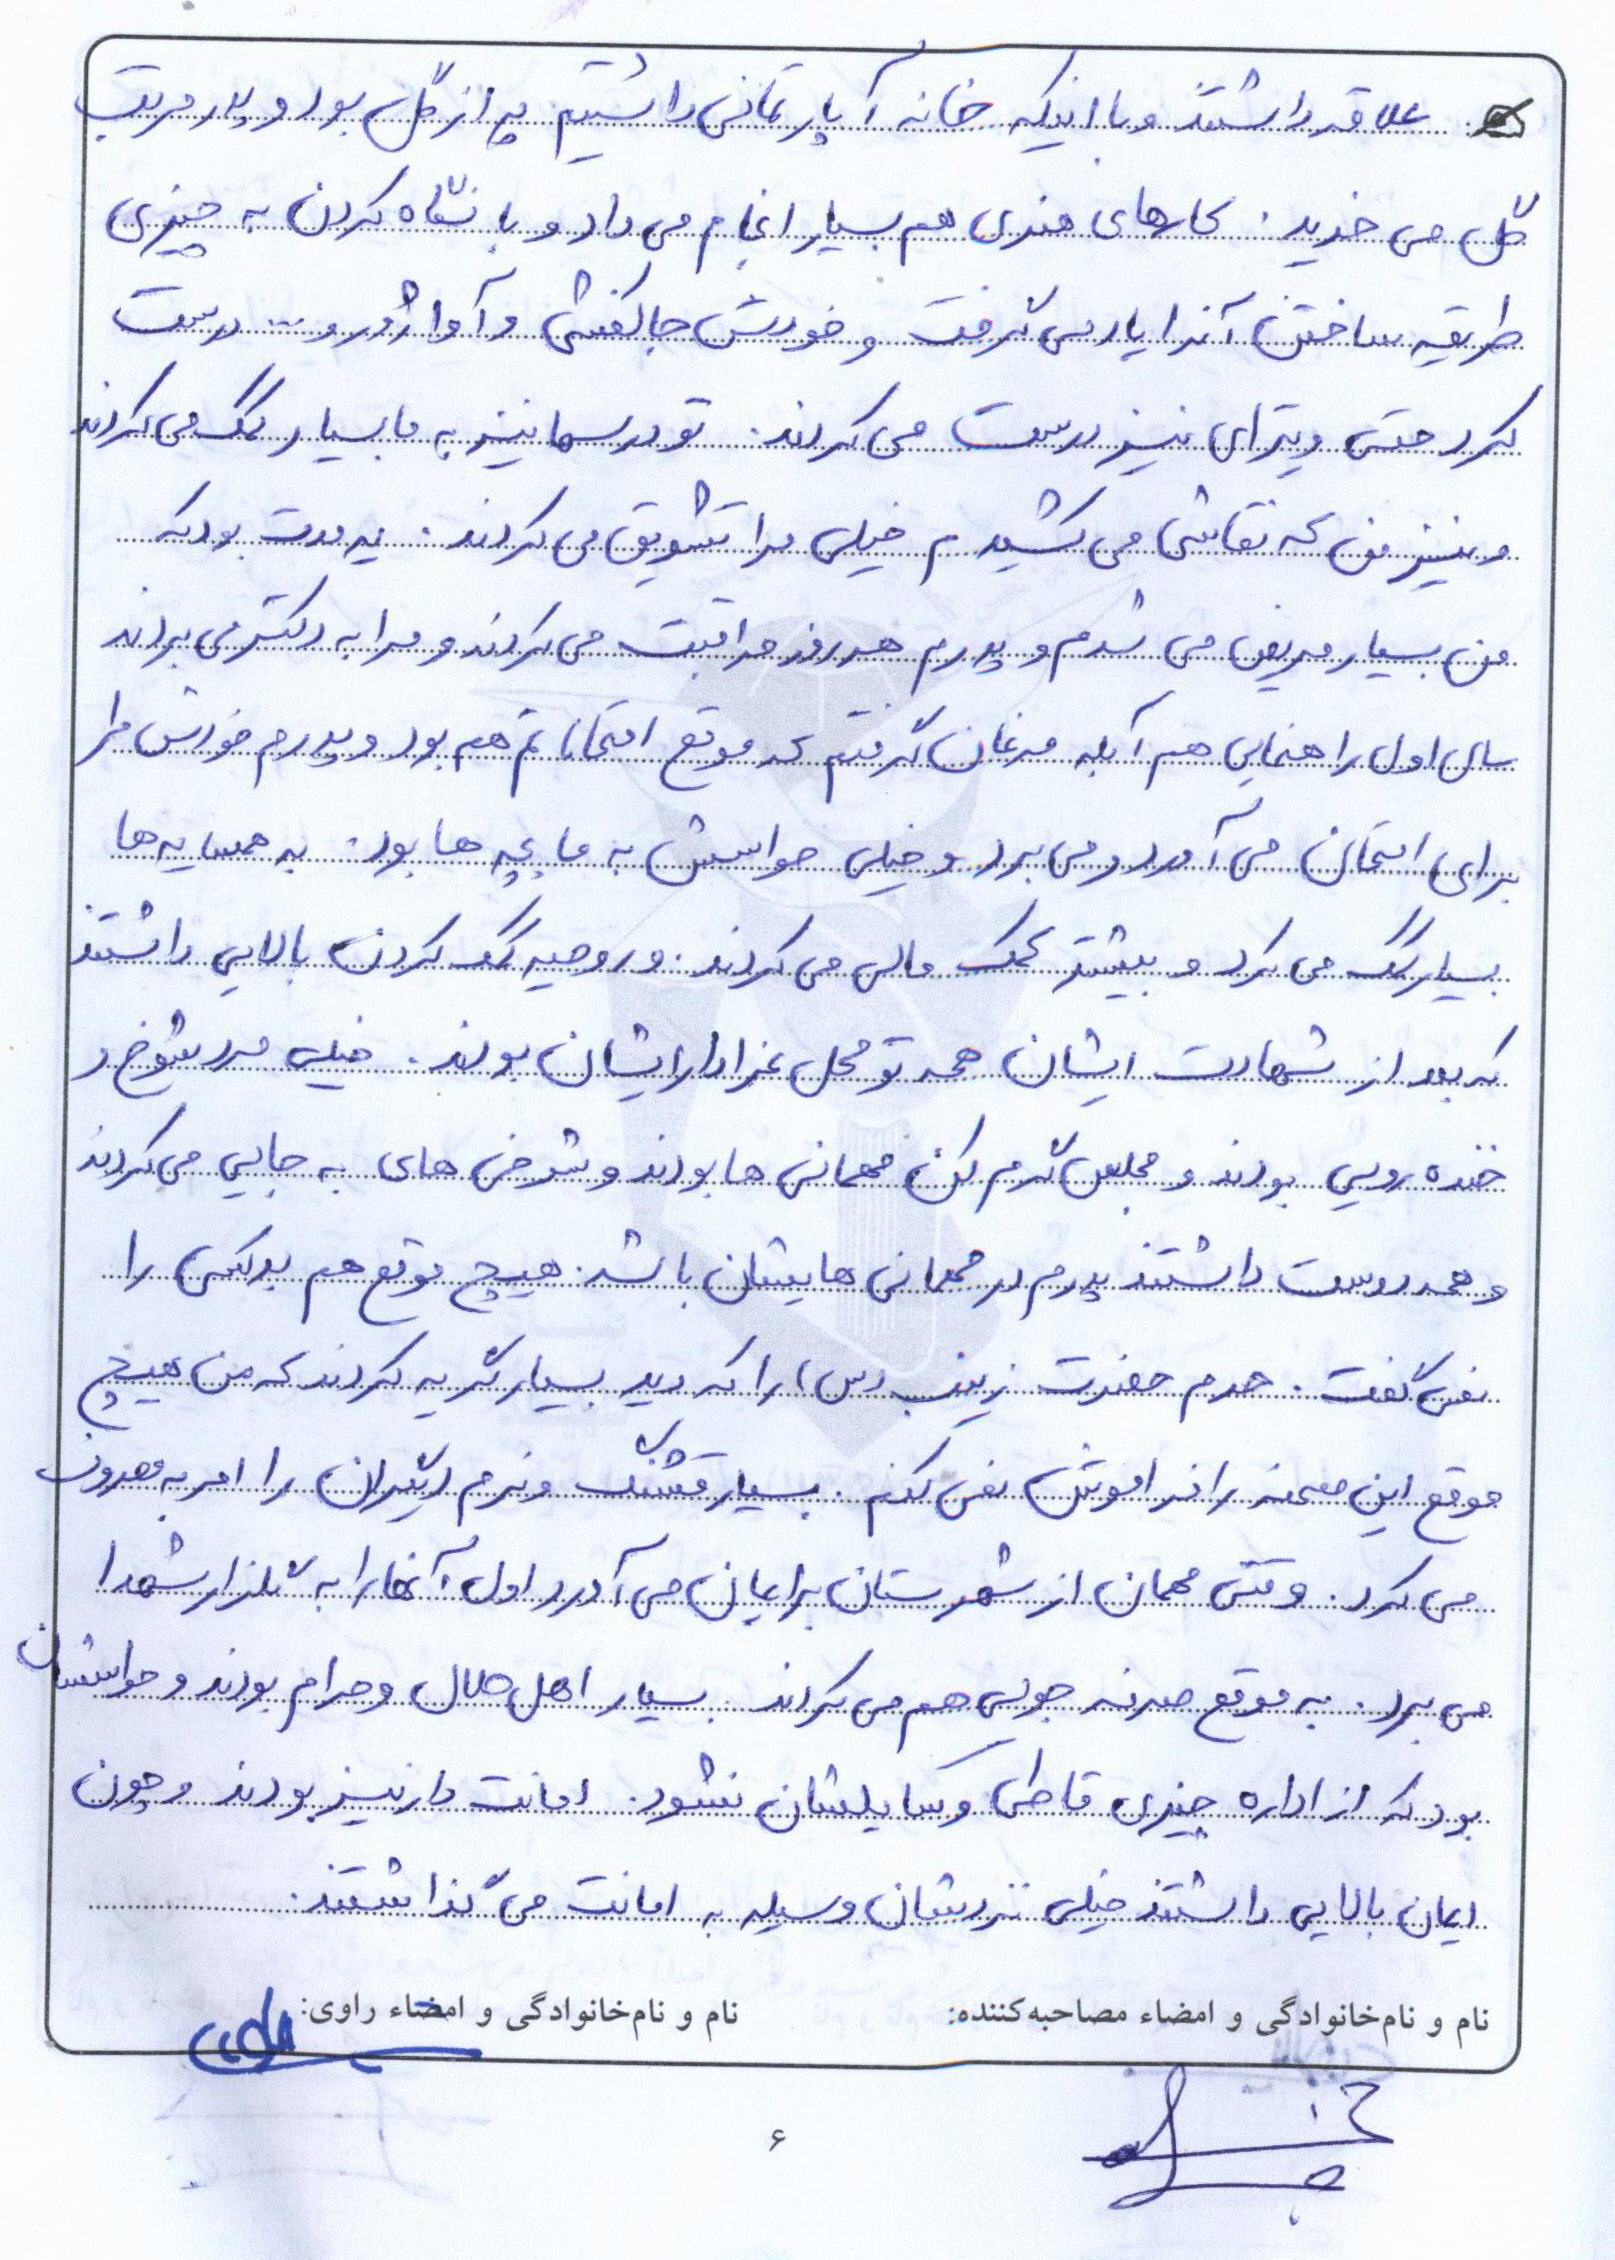 علاقه داشتند و با اینکه خانه آپارتمانی داشتیم پر از گل بود و پدر مرتب
گل می خرید. کارهای هنری هم بسیار انجام می داد و با نگاه کردن به چیزی
طریقه ساختن آنرا یاد می گرفت و خودش جاکفشی و آواژور و ... درست
کرد حتی ویترای نیز درست می کردند. تو درسها نیز به ما بسیار کمک می کردند
و نیز من که نقاشی می کشیدم خیلی مرا تشویق می کردند. یه مدت بود که
من بسیار مریض می شدم و پدرم هر روز مراقبت می کردند و مرا به دکتر می بردند
سال اول راهنمایی هم آبله مرغان گرفتم که موقع امتحاناتم هم بود و پدرم خودش مرا
برای امتحان می آورد و می برد و خیلی حواسش به ما بچه ها بود. به همسایه ها
بسیار کمک می کرد و بیشتر کمک مالی می کردند. و روحیه کمک کردن بالایی داشتند
که بعد از شهادت ایشان همه تو محل عزادار ایشان بودند. خیلی مرد شوخ و
خنده رویی بودند و مجلس گرم کن مهمانی ها بودند و شوخی های به جایی می کردند
و همه دوست داشتند پدرم در مهمانی هایشان باشد. هیچ موقع هم بد کسی را
نمی گفت. حرم حضرت زینب (س) را که دید بسیار گریه کردند که من هیچ
موقع این صحنه را فراموش نمی کنم. بسیار قشنگ و نرم دیگران را امر به معروف
می کرد. وقتی مهمان از شهرستان برایمان می آورد اول آنها را به گلزار شهدا
می برد. به موقع صرفه جویی هم می کردند. بسیار اهل حلال و حرام بودند و حواسشان
بود که از اداره چیزی قاطی وسایلشان نشود. امانت دار نیز بودند و چون
ایمان بالایی داشتند خیلی نزدشان وسیله به امانت می گذاشتند.
نام و نام‌خانوادگی و امضاء مصاحبه‌کننده: نام و نام‌خانوادگی و امضاء راوی:
۶